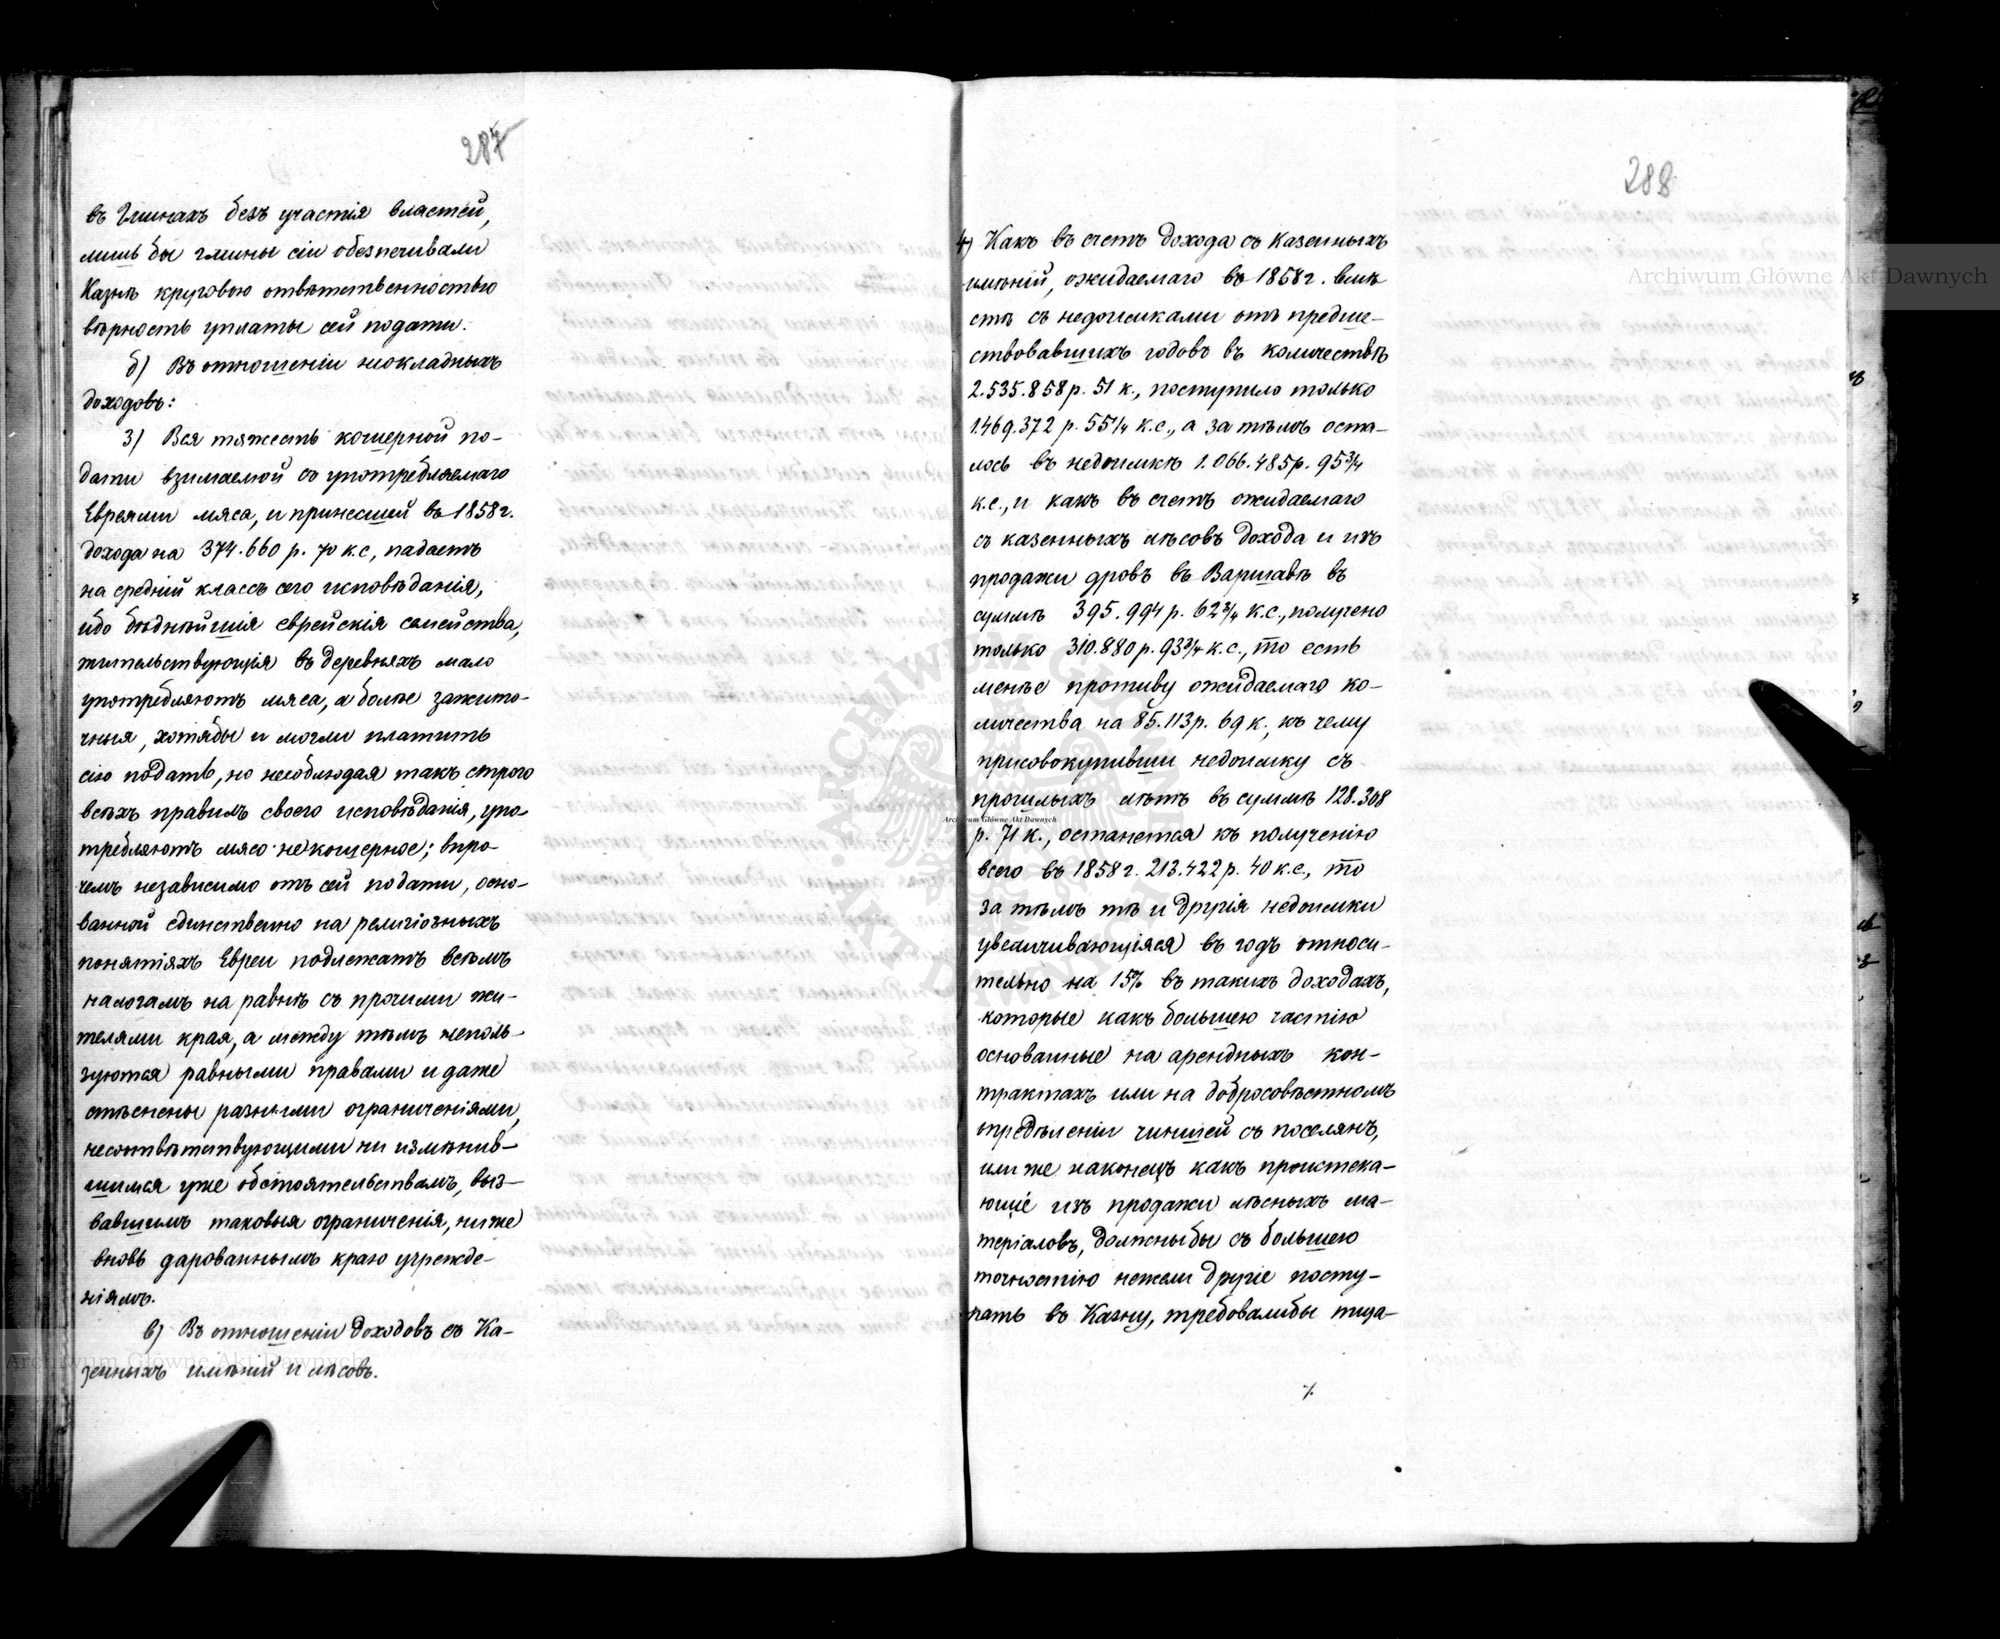 287
въ Гминахъ безъ участія властей,
лишь бы гмины сіи обезпечивали
Казнѣ круговою отвѣтственностью
вѣрность уплаты сей подати.
б) Въ отношеніи неокладныхъ
доходовъ:
3) Вся тяжесть кошерной по-
дати взимаемой съ употребляемаго
Евреями мяса, и принесшей въ 1858 г.
дохода на 374.660 р. 70 к.с., падаетъ
на средній классъ сего исповѣданія,
ибо бѣднѣйшія еврейскія семейства,
жительствующія въ деревняхъ мало
употребляютъ мяса, а болѣе зажито-
чныя, хотябы и могли платить
сію подать, но несоблюдая такъ строго
всѣхъ правилъ своего исповѣданія, упо-
требляютъ мясо некошерное; впро-
чемъ независимо отъ сей подати, осно-
ванной единственно на религіозныхъ
понятіяхъ Евреи подлежатъ всѣмъ
налогамъ на равнѣ съ прочими жи-
телями края, а между тѣмъ неполь-
зуются равными правами и даже
стѣснены разными ограниченіями,
несоотвѣтствующими ни измѣнив-
шимся уже обстоятельствамъ, выз-
вавшимъ таковыя ограниченія, ниже
вновь дарованнымъ краю учрежде-
ніямъ.
в) Въ отношеніи доходовъ съ Ка-
зенныхъ имѣній и лѣсовъ.
288
4) Какъ въ счетъ дохода съ Казенныхъ
имѣній, ожидаемаго въ 1858 г. вмѣ
стѣ съ недоимками отъ предше-
ствовавшихъ годовъ въ количествѣ
2.535.858 р. 51 к., поступило только
1.469.372 р. 55 1/4 к.с., а за тѣмъ оста-
лось въ недоимкѣ 1.066.485 р. 95 3/4
к.с., и какъ въ счетъ ожидаемаго
съ казенныхъ лѣсовъ дохода и изъ
продажи дровъ въ Варшавѣ въ
суммѣ 395.994 р. 62 3/4 к.с., получено
только 310.880 р. 93 3/4 к.с., то есть
менѣе противу ожидаемаго ко-
личества на 85.113 р. 69 к., къ чему
присовокупивши недоимку съ
прошлыхъ лѣтъ въ суммѣ 128.308
р. 71 к., останется къ полученію
всего въ 1858 г. 213.422 р. 40 к.с., то
за тѣмъ тѣ и другія недоимки
увеличивающіяся въ годъ относи-
тельно на 15% въ такихъ доходахъ,
которые какъ большею частію
основанные на арендныхъ кон-
трактахъ или на добросовѣстномъ
опредѣленіи чиншей съ поселянъ,
или же наконецъ какъ проистека-
ющіе изъ продажи лѣсныхъ ма-
теріаловъ, должны бы съ большею
точностію нежели другіе посту-
пать въ Казну, требовалибы тща-
./.
Archiwum Główne Akt Dawnych
Archiwum Główne Akt Dawnych
Archiwum Główne Akt Dawnych